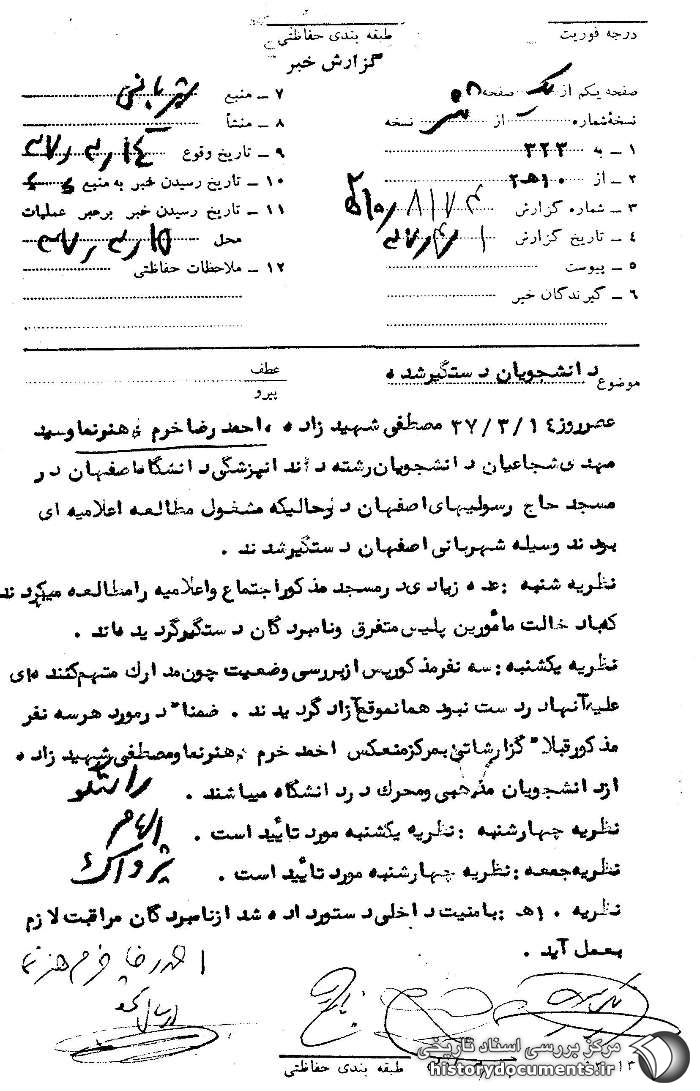 درجه فوریت
طبقه بندی حفاظتی
گزارش خبر
صفحه یکم از یک صفحه
نسخهٔ شماره از نسخه
۱ ـ به ۳۲۳
۲ ـ از ۱۰هـ۲
۳ ـ شماره گزارش ۸۱۷۴
۴ ـ تاریخ گزارش
۵ ـ پیوست
۶ ـ گیرندگان خبر
۷ ـ منبع شهربانی
۸ ـ منشأ
۹ ـ تاریخ وقوع ۳۷٫۳٫۱۴
۱۰ ـ تاریخ رسیدن خبر به منبع
۱۱ ـ تاریخ رسیدن خبر برهبر عملیات
محل ۳۷٫۳٫۱۵
۱۲ ـ ملاحظات حفاظتی
موضوع دانشجویان دستگیرشده
عطف
پیرو
عصرروز ۳۷/۳/۱۴ مصطفی شهیدزاده ، احمدرضا خرم هنرنما وسید
مهدی شجاعیان دانشجویان رشته دندانپزشکی دانشگاه اصفهان در
مسجد حاج رسولیهای اصفهان درحالیکه مشغول مطالعه اعلامیه ای
بودند وسیله شهربانی اصفهان دستگیرشدند .
نظریه شنبه : عده زیادی درمسجد مذکوراجتماع واعلامیه رامطالعه میکردند
که باد خالت مأمورین پلیس متفرق ونامبردگان دستگیرگردیده‌اند .
نظریه یکشنبه : سه نفرمذکورپس ازبررسی وضعیت چون مدارك متهم کننده ای
علیه آنهادردست نبود همانموقع آزاد گردیدند . ضمناً درمورد هرسه نفر
مذکورقبلاً گزارشاتی بمرکزمنعکس احمد خرم هنرنما ومصطفی شهیدزاده
از دانشجویان مذهبی ومحرك دردانشگاه میباشند .
نظریه چهارشنبه : نظریه یکشنبه مورد تأیید است . الهام
نظریه جمعه : نظریه چهارشنبه مورد تأیید است . پژواک
نظریه ۱۰هـ : بامنیت داخلی دستورداده شد ازنامبردگان مراقبت لازم
بعمل آید .
احمدرضا خرم هنرنما
طبقه بندی حفاظتی
مرکز بررسی اسناد تاریخی
historydocuments.ir